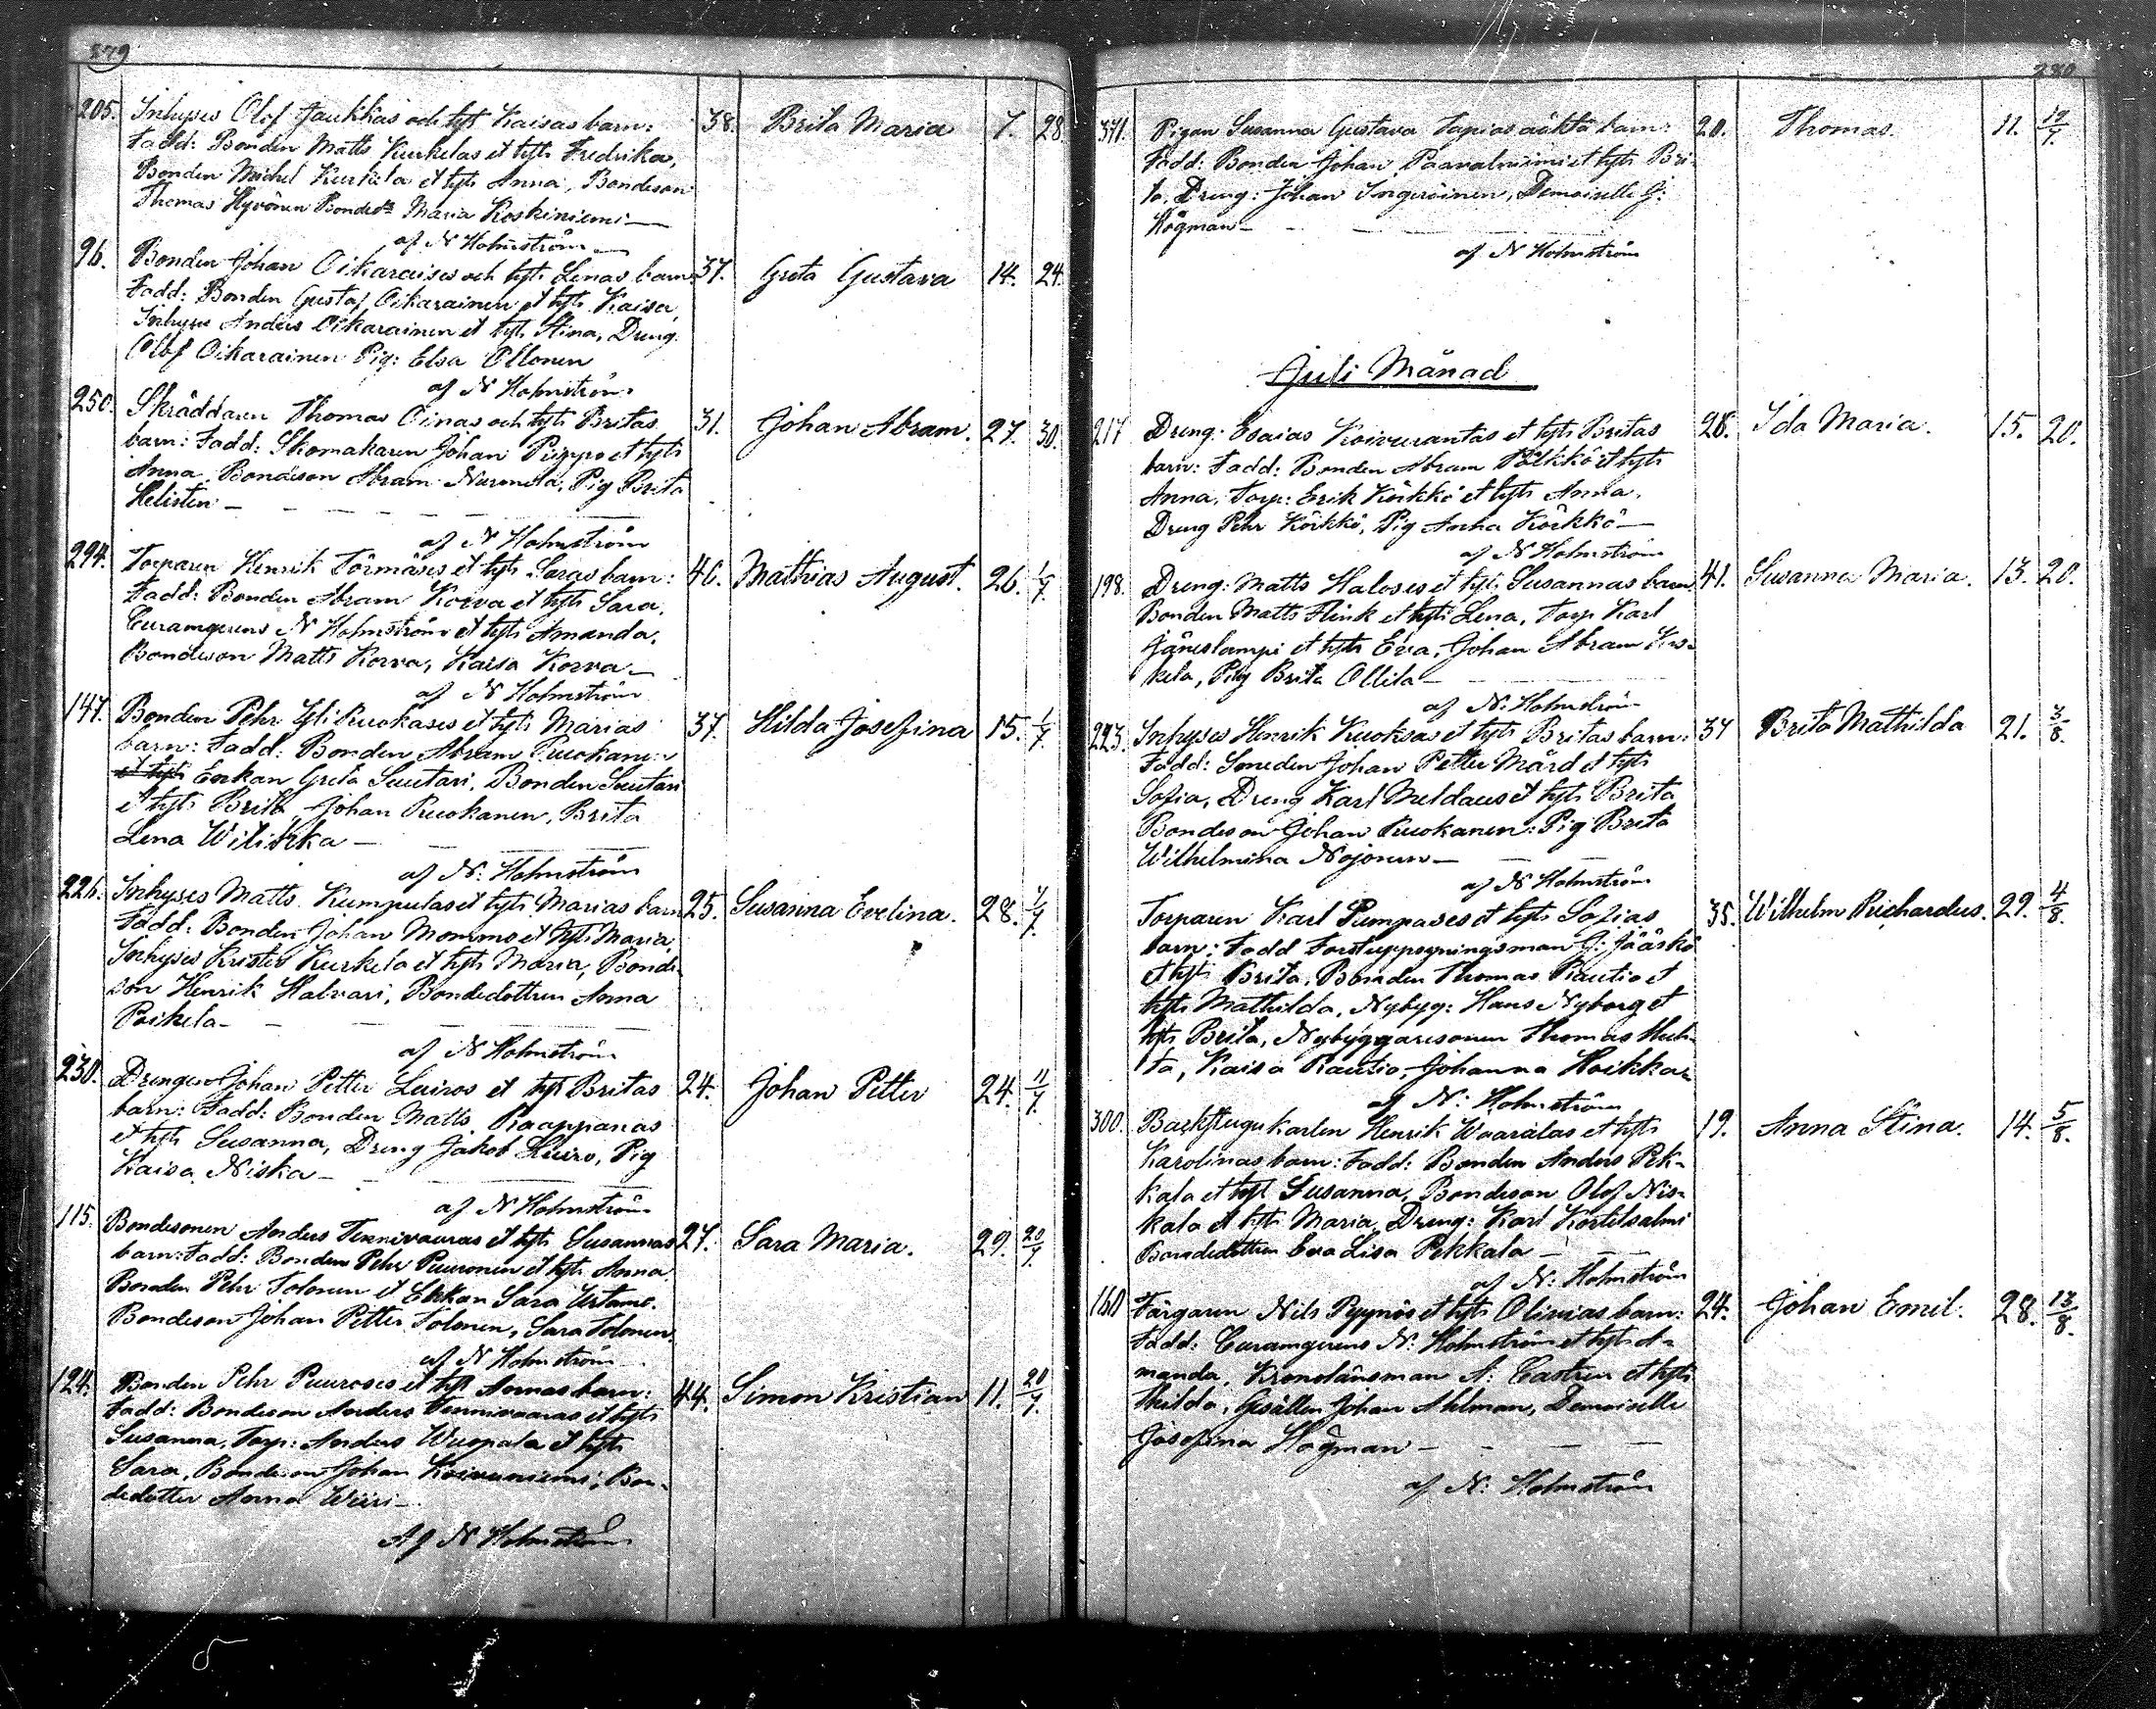 279
205. Inhyses Olof Jaukkas och hst Kaisas barn: 38. Brita Maria 7. 28.
Fadd: Bonden Matts Kurkelas et hst Fredrika,
Bonden Michel Kurkela et hst Anna, Bondeson
Thomas Hyvönen Bondedtt Maria Koskiniemi —
af N Holmström
96. Bonden Johan Oikaraises och hst Lenas barn 37. Greta Gustava 14. 24.
Fadd: Bonden Gustaf Oikarainen et hst Kaisa,
Inhyse Anders Oikarainen et hst Stina, Dreng
Olof Oikarainen Pig: Elsa Ollonen
af N Holmström
250. Skräddaren Thomas Oinas och hst Britas 31. Johan Abram. 27. 30.
barn: Fadd: Skomakaren Johan Pyyppo et hst
Anna, Bondeson Abram Nurmela, Pig Brita
Helisten —
af N Holmström
294. Torparen Henrik Törmäses et hst Saras barn: 46. Mathias August. 26. 1/7.
Fadd: Bonden Abram Korva et hst Sara,
Curamgerens N Holmström et hst Amanda,
Bondeson Matts Korva, Kaisa Korva —
af N Holmström
147. Bonden Pehr Yli Ruokases et hst Marias 37. Hilda Josefina 15. 1/7.
barn: Fadd: Bonden Abram Ruokanen
et hst Enkan Greta Suutari, Bonden Suutari
et hst Brita, Johan Ruokanen, Brita
Lena
af N: Holmström
226. Inhyses Matts Kumpulas et hst Marias barn 25. Susanna Evelina. 28. 4/7.
Fadd: Bonden Johan Mommo et hst Maria,
Inhyses Krister Kurkela et hst Maria, Bonde-
son Henrik Halvari, Bondedottren Anna
Poikela —
af N Holmström
230. Drengen Johan Petter Luiros et hst Britas 24. Johan Petter 24. 11/7.
barn: Fadd: Bonden Matts Kaappanas
et hst Susanna, Dreng Jakob Luiro, Pig
Kaisa Niska —
af N Holmström
115. Bondesonen Anders Tennivaaras et hst Susannas 27. Sara Maria. 29. 20/7.
barn: Fadd: Bonden Pehr Puuronen et hst Anna,
Bonden Pehr Tolonen et Enkan Sara
Bondeson Johan Petter Tolonen, Sara Tolonen.
af N Holmström
124. Bonden Pehr Puuroses et hst Annas barn: 44. Simon Kristian 11. 20/7.
Fadd: Bondeson Anders Tennivaaras et hst
Susanna, Torp: Anders Wuopala et hst
Sara, Bondeson Johan Koivuniemi, Bon-
dedotter Anna Wiiri —
Af N Holmström
280
371. Pigan Susanna Gustava Tapias oäkta barn: 20. Thomas. 11. 19/7.
Fadd: Bonden Johan Paavalniemi et hst Bri-
ta, Dreng: Johan Ingeröinen, Demoiselle J:
Högman —
af N Holmström
Juli Månad
217 Dreng: Esaias Koivurantas et hst Britas 28. Ida Maria. 15. 20.
barn: Fadd: Bonden Abram Pölkkö et hst
Anna, Torp: Erik Körkkö et hst Anna,
Dreng Pehr Körkkö, Pig Anna Körkkö —
af N Holmström
198. Dreng: Matts Haloses et hst Susannas barn 41. Susanna Maria. 13. 20.
Bonden Matts Flink et hst Lena, Torp Karl
Jäneslampi et hst Eva, Johan Abram Kur-
kela, Pig Brita Ollila —
af N: Holmström
223. Inhyses Henrik Kuoksas et hst Britas barn: 37 Brita Mathilda 21. 3/8.
Fadd: Smeden Johan Petter Mård et hst
Sofia, Dreng Karl Meldaus et hst Brita
Bondeson Johan Ruokanen: Pig Brita
Wilhelmina Nojonen —
af N Holmström
Torparen Karl Pumpases et hst Sofias 35. Wilhelm Richardus. 29. 4/8.
barn: Fadd Forstuppsyningsman G: Jääskö
et hst Brita, Bonden Thomas Rautio et
hst Mathilda, Nybyg: Hans Nyborg et
hst Brita, Nybyggaresonen Thomas Huh-
ta, Kaisa Rautio, Johanna Hoikka —
af N: Holmström
300. Backstugukarlen Henrik Waaralas et hst 19. Anna Stina. 14. 5/8.
Karolinas barn: Fadd: Bonden Anders Pek-
kala et hst Susanna, Bondeson Olof Nis-
kala et hst Maria, Dreng: Karl Kortelsalmi
Bondedottren Eva Lisa Pekkala —
af N: Holmström
160 Färgaren Nils Pyynös et hst Olivias barn: 24. Johan Emil. 28. 13/8.
Fadd: Curamgerens N: Holmström et hst A-
manda, Kronolänsman A: Castren et hst
Thilda, Gesällen Johan Ahlman, Demoiselle
Josefina Högman —
af N: Holmström